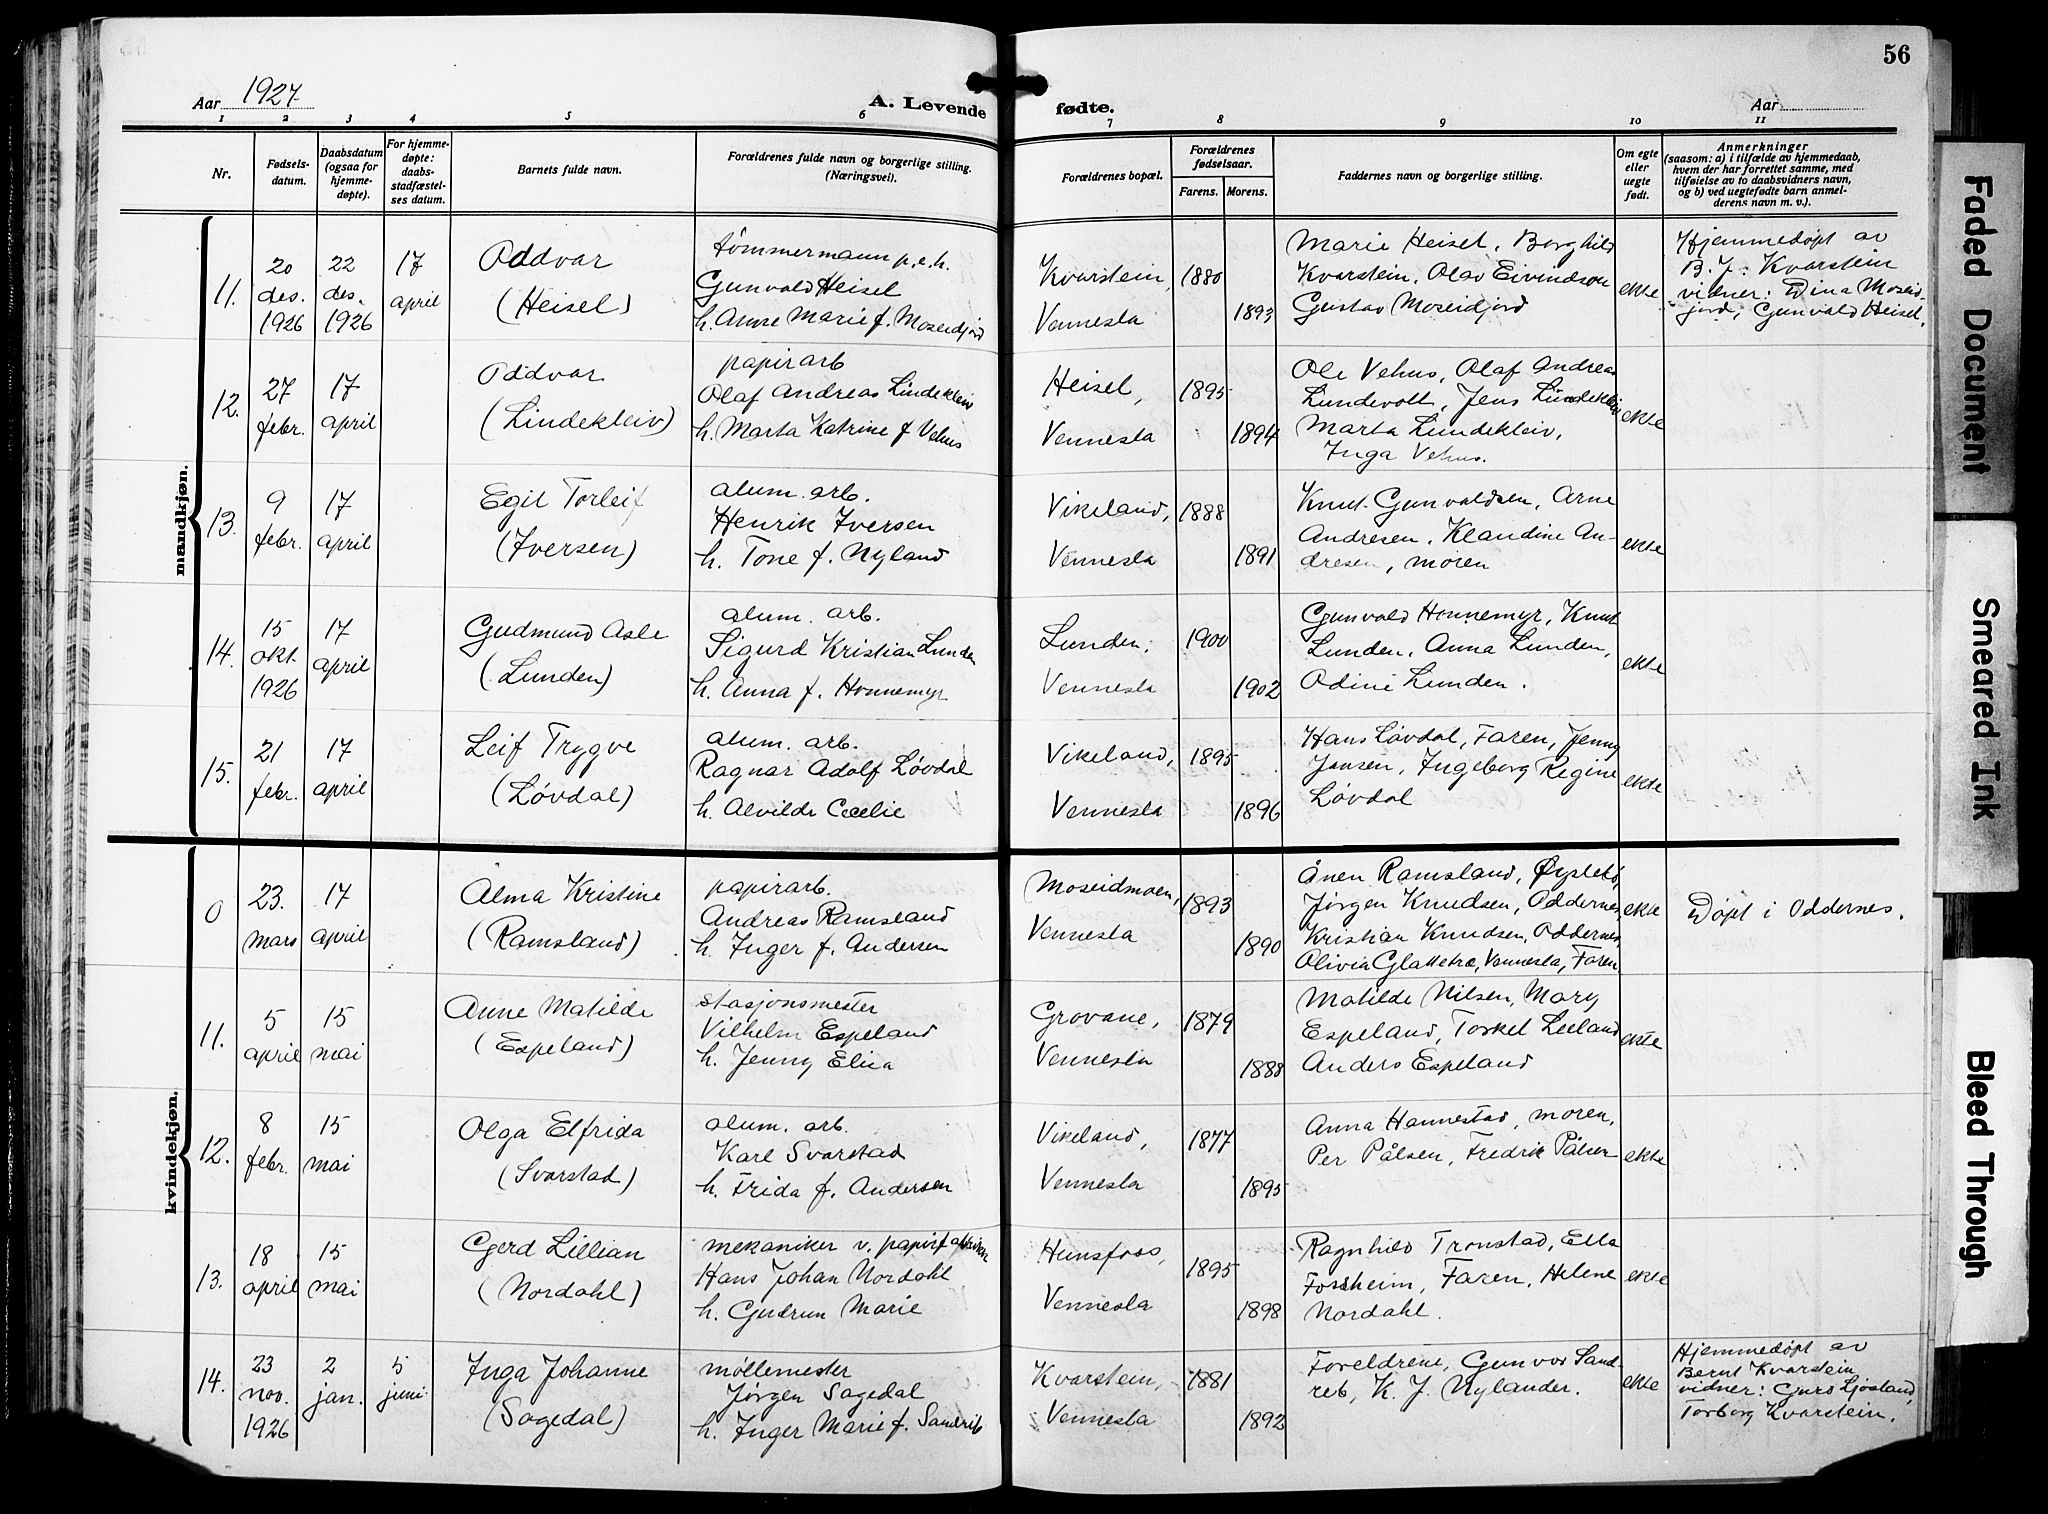 56
Aar 1927.
A. Levende fødte.
Aar
1 2 3 4 5 6 7 8 9 10 11
Nr.
Fødsels-
datum.
Daabsdatum
(ogsaa for
hjemme-
døpte).
For hjemme-
døpte:
daabs-
stadfæstel-
ses datum.
Barnets fulde navn.
Forældrenes fulde navn og borgerlige stilling.
(Næringsvei).
Forældrenes bopæl.
Forældrenes
fødselsaar.
Farens. Morens.
Faddernes navn og borgerlige stilling.
Om egte
eller
uegte
født.
Anmerkninger
(saasom: a) i tilfælde av hjemmedaab,
hvem der har forrettet samme, med
tilføielse av to daabsvidners navn,
og b) ved uegtefødte barn anmel-
derens navn m. v.).
mandkjøn.
11.
20
des.
1926
22
des.
1926
17
april
Oddvar
(Heisel)
tømmermann p.e.h.
Gunvald Heisel
h. Anne Marie f. Moseidjord
Kvarstein,
Vennesla
1880
1893
Marie Heisel, Borghild
Kvarstein, Olav Eivindson
Gustav Moseidjord
ekte
Hjemmedøpt av
B. J. Kvarstein
vidner: Dina Moseid-
jord, Gunvald Heisel.
12.
27
febr.
17
april
Oddvar
(Lindekleiv)
papirarb
Olaf Andreas Lindekleiv
h. Marta Katrine f Vehus
Heisel,
Vennesla
1895
1894
Ole Vehus, Olaf Andreas
Lundevoll, Jens Lindekleiv
Marta Lindekleiv,
Inga Vehus.
ekte
13.
9
febr.
17
april
Egil Torleif
(Iversen)
alum. arb.
Henrik Iversen
h. Tone f. Nyland
Vikeland,
Vennesla
1888
1891
Knut Gunvaldsen, Arne
Andresen, Klaudine An-
dresen, moren
ekte
14.
15
okt
1926
17
april
Gudmund Asle
(Lunden)
alum. arb.
Sigurd Kristian Lunden
h. Anna f. Honnemyr
Lunden,
Vennesla
1900
1902
Gunvald Honnemyr, Knut
Lunden, Anna Lunden,
Odine Lunden.
ekte
15.
21
febr.
17
april
Leif Trygve
(Løvdal)
alum. arb.
Ragnar Adolf Løvdal
h. Alvilde Cecelie
Vikeland,
Vennesla
1895
1896
Hans Løvdal, Faren, Jenny
Jansen, Ingeborg Regine
Løvdal
ekte
kvindekjøn.
0
23.
mars
17
april
Alma Kristine
(Ramsland)
papirarb.
Andreas Ramsland
h. Inger f. Andersen
Moseidmoen,
Vennesla
1893
1890
Ånen Ramsland, Øyslebø,
Jørgen Knudsen, Oddernes,
Kristian Knudsen, Oddernes,
Olivia Glattetre, Vennesla, Faren
ekte
Døpt i Oddernes.
11.
5
april
15
mai
Anne Matilde
(Espeland)
stasjonsmester
Vilhelm Espeland
h. Jenny Elisa
Grovane,
Vennesla
1879
1888
Matilde Nilsen, Mary
Espeland, Torkel Leeland
Anders Espeland
ekte
12.
8
febr.
15
mai
Olga Elfrida
(Svarstad)
alum. arb.
Karl Svarstad
h. Frida f. Andersen
Vikeland,
Vennesla
1877
1895
Anna Hannestad, moren,
Per Pålsen, Fredrik Pålsen
ekte
13.
18
april
15
mai
Gerd Lillian
(Nordahl)
mekaniker v. papirfabrikken
Hans Johan Nordahl
h. Gudrun Marie
Hunsfoss,
Vennesla
1895
1898
Ragnhild Tronstad, Ella
Forsheim, Faren, Helene
Nordahl.
ekte
14.
23
nov.
1926
2
jan.
5
juni
Inga Johanne
(Sagedal)
møllemester
Jørgen Sagedal
h. Inger Marie f. Sandrib
Kvarstein,
Vennesla
1881
1892
Foreldrene, Gunvor Sand-
reb, K. J. Nylander.
ekte
Hjemmedøpt av
Bernt Kvarstein
vidner: Guro Ljosland,
Torborg Kvarstein.
Faded Document
Smeared Ink
Bleed Through